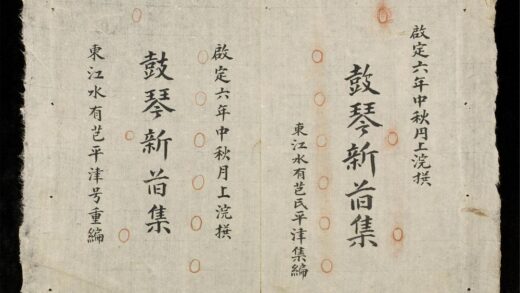 啟定六年中秋月上浣撰
鼓琴新集
東江水有芑氏平津集編
啟定六年中秋月上浣撰
鼓琴新集
東江水有芑平津号重編